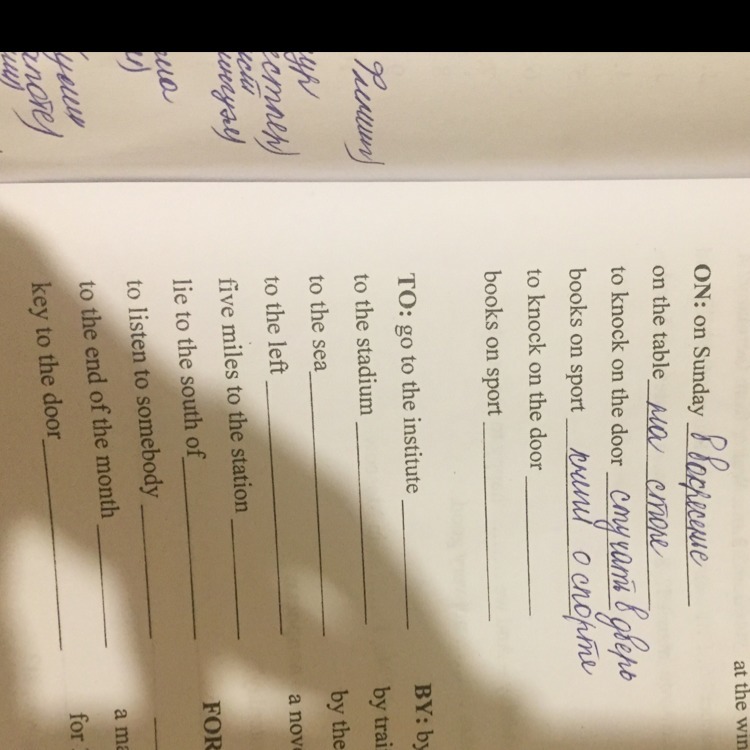 ON: on Sunday в воскресение
on the table на столе
to knock on the door стучать в дверь
books on sport книги о спорте
to knock on the door
books on sport
TO: go to the institute
to the stadium
to the sea
to the left
five miles to the station
lie to the south of
to listen to somebody
to the end of the month
key to the door
at the win
BY: by
by trai
by the
a nov
FOR
a ma
for